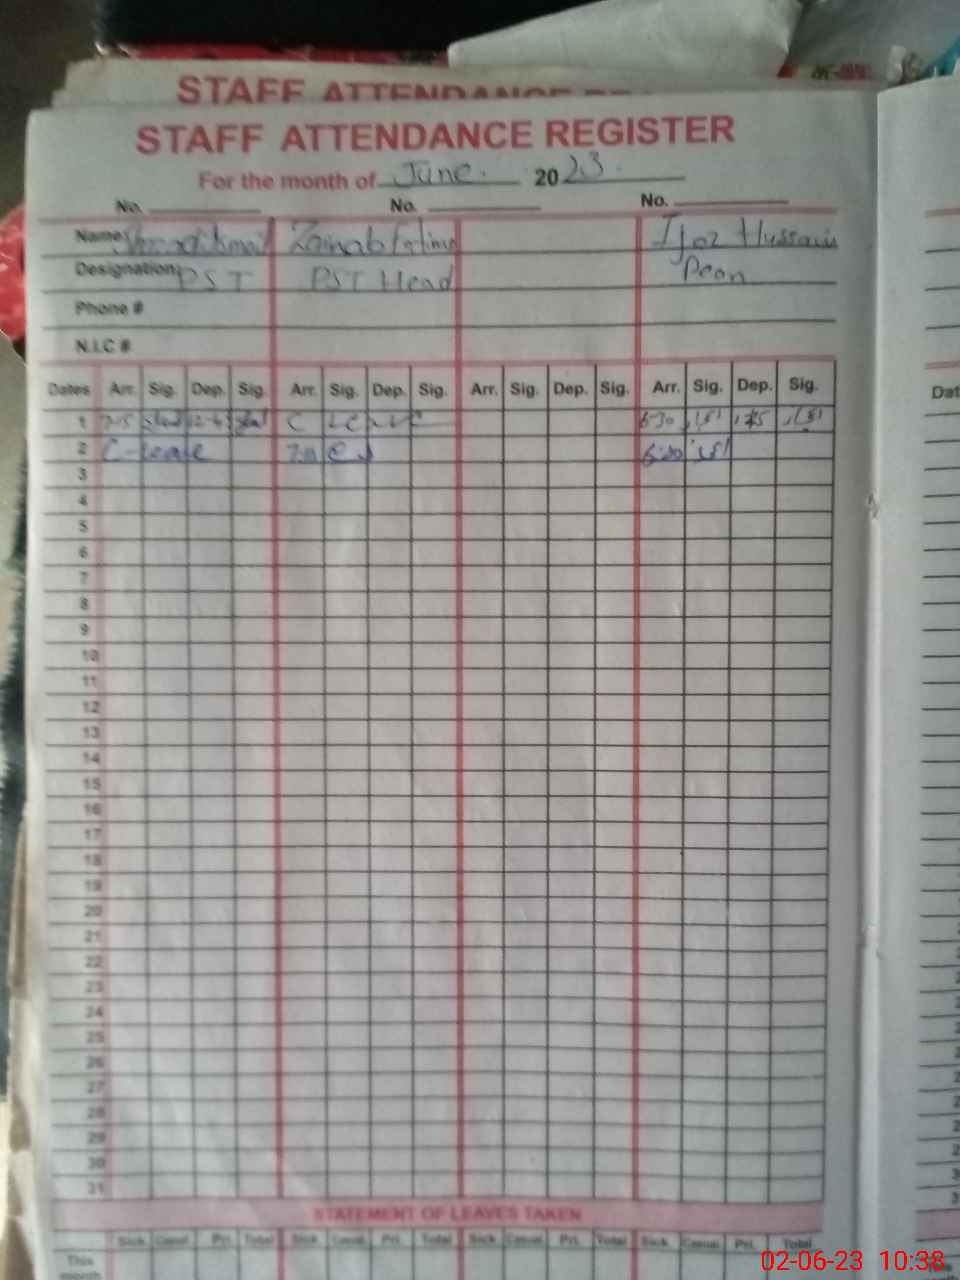 STAFF ATTENDANCE
STAFF ATTENDANCE REGISTER
For the month of June. 2023.
No. No. No.
Name Zainab Fatima Ijaz Hussain
Designation PST PST Head Peon
Phone #
N.I.C #
Dates Arr. Sig. Dep. Sig. Arr. Sig. Dep. Sig. Arr. Sig. Dep. Sig. Arr. Sig. Dep. Sig.
1 7-15 C Leave 6-30
2 C-Leave
3
4
5
6
7
8
9
10
11
12
13
14
15
16
17
18
19
20
21
22
23
24
25
26
27
28
29
30
31
STATEMENT OF LEAVES TAKEN
Sick Casual Pri. Total Sick Casual Pri. Total Sick Casual Pri. Total Sick Casual Pri. Total
This
month
02-06-23 10:38